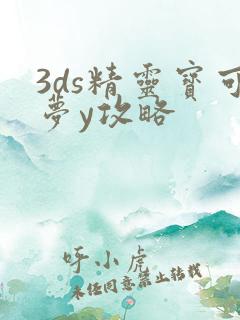 3ds精靈寶可
夢y攻略
呼小虎
未经同意禁止转载